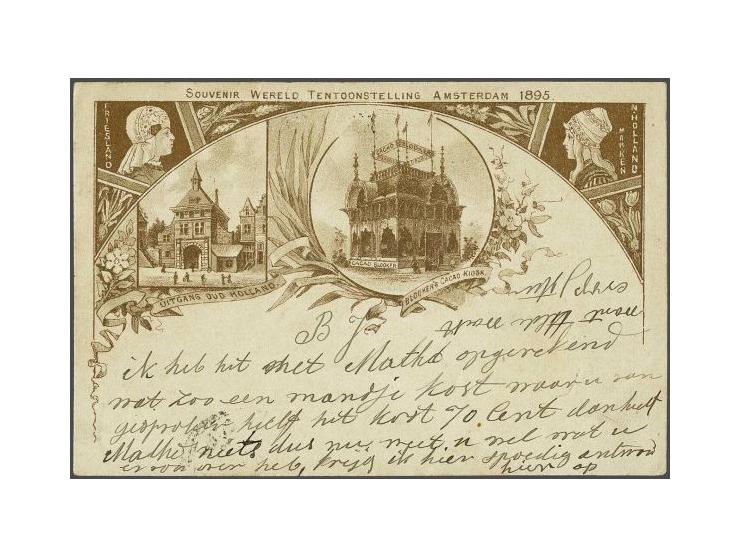 SOUVENIR WERELD TENTOONSTELLING AMSTERDAM 1895.
FRIESLAND
N. HOLLAND
MARKEN
CACAO BLOOKER
UITGANG OUD HOLLAND.
BLOOKER'S CACAO KIOSK.
B J
ik heb het met Mathe opgerekend
wat zoo een mandje kost waar u van
gesproken heeft het kost 70 Cent dan heeft
Mathe niets dus nu weet u wel wat u
er voor over heb, krijg ik hier spoedig antword
hier op